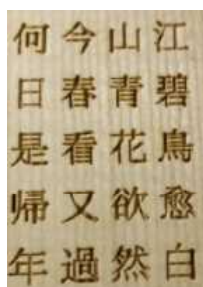 江碧鳥愈白
山青花欲然
今春看又過
何日是帰年